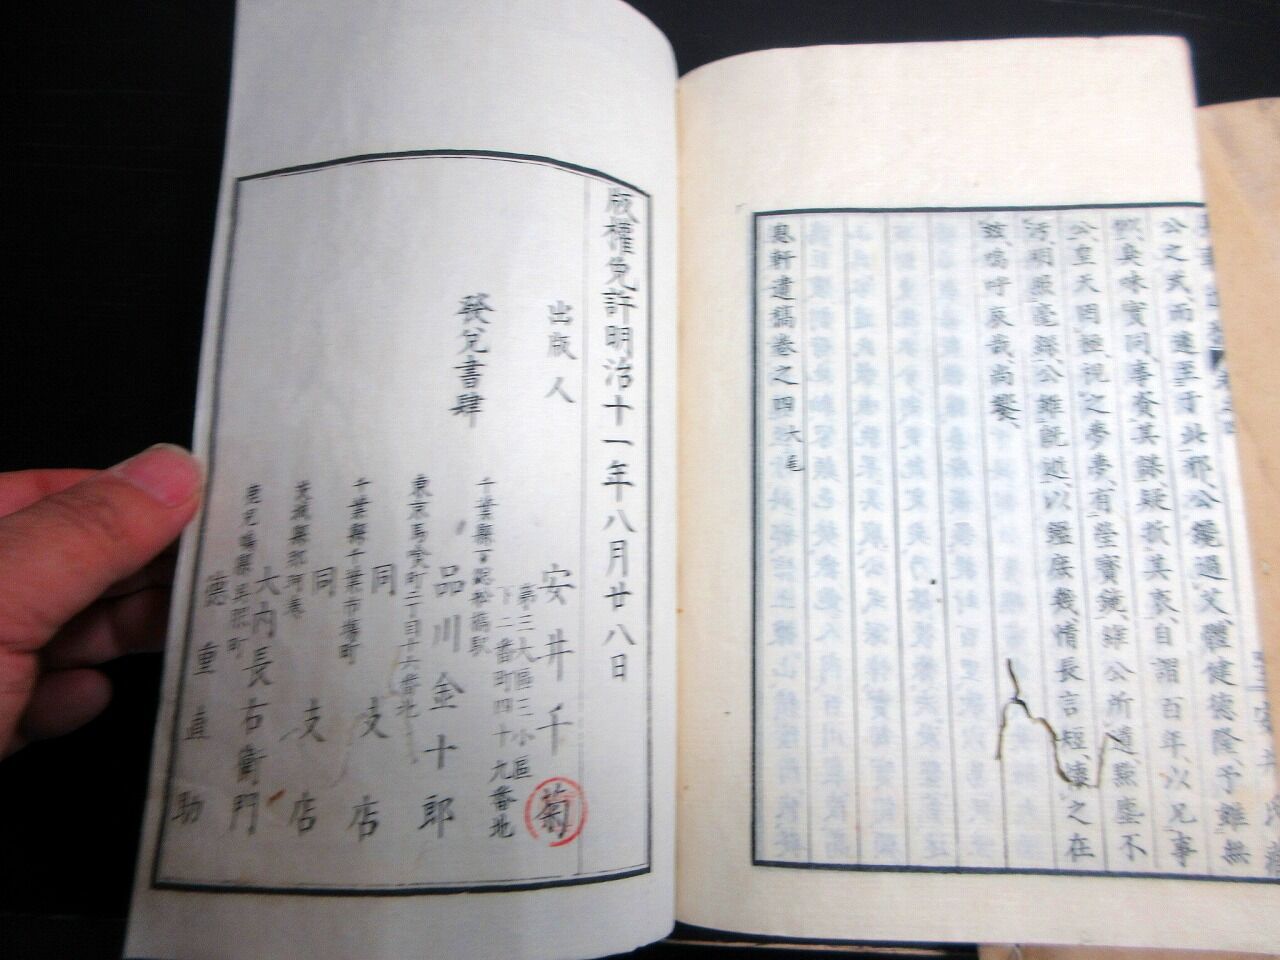 公之武、而遽至于此邪、公纔過艾、體健德隆、予雖無
似、臭味實同、事資其謀、疑敬其衷、自謂百年、以兄事
公、皇天罔極、視之夢夢、有瑩寶鏡、維公所遺、點塵不
汚、明照毫髮、公雖既逝、以鑑庶幾、情長言短、悽之在
玆、嗚呼哀哉、尚饗、
息軒遺稿卷之四大尾
版權免許明治十一年八月廿八日
出版人 安井千菊
第三大區三小區
下二番町四十九番地
發兌書肆
千葉縣下総松橋駅
品川金十郎
東京馬喰町二丁目十六番地
同支店
千葉縣千葉市場町
同支店
茨城縣那珂港
大内長右衛門
鹿児島縣
德重直助